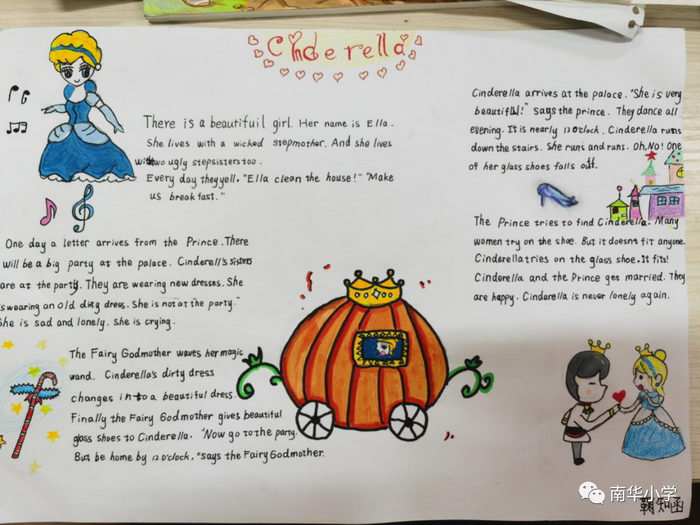 Cinderella
There is a beautifuil girl. Her name is Ella.
She lives with a wicked stepmother. And she lives
with two ugly stepsisters too.
Every day they yell, "Ella clean the house!" "Make
us breakfast."
One day a letter arrives from the Prince. There
will be a big party at the palace. Cinderella's sisters
are at the party. They are wearing new dresses. She
is wearing an old dirty dress. She is not at the party.
She is sad and lonely. She is crying.
The Fairy Godmother waves her magic
wand. Cinderella's dirty dress
changes in to a beautiful dress.
Finally the Fairy Godmother gives beautiful
glass shoes to Cinderella. "Now go to the party.
But be home by 12 o'clock," says the Fairy Godmother.
Cinderella arrives at the palace. "She is very
beautiful!" says the prince. They dance all
evening. It is nearly 12 o'clock. Cinderella runs
down the stairs. She runs and runs. Oh, No! One
of her glass shoes falls off.
The Prince tries to find Cinderella. Many
women try on the shoe. But it doesnt fit anyone.
Cinderella tries on the glass shoe. It fits!
Cinderella and the Prince get married. They
are happy. Cinderella is never lonely again.
南华小学
鞠知函